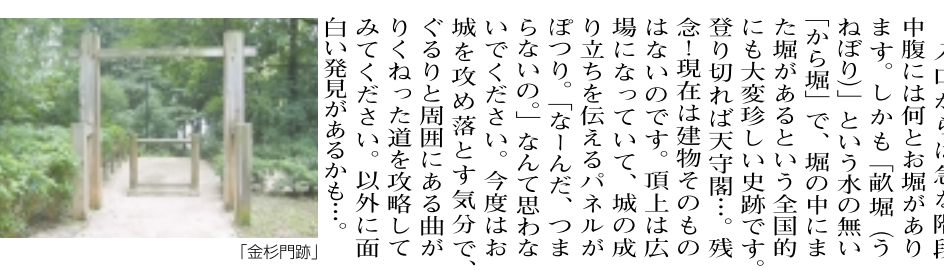 入口からは急な階段
中腹には何とお堀があり
ます。しかも「畝堀（う
ねぼり）」という水の無い
「から堀」で、堀の中にま
た堀があるという全国的
にも大変珍しい史跡です。
登り切れば天守閣…。残
念！現在は建物そのもの
はないのです。頂上は広
場になっていて、城の成
り立ちを伝えるパネルが
ぽつり。「なーんだ、つま
らないの。」なんて思わな
いでください。今度はお
城を攻め落とす気分で、
ぐるりと周囲にある曲が
りくねった道を攻略して
みてください。以外に面
白い発見があるかも…。
「金杉門跡」